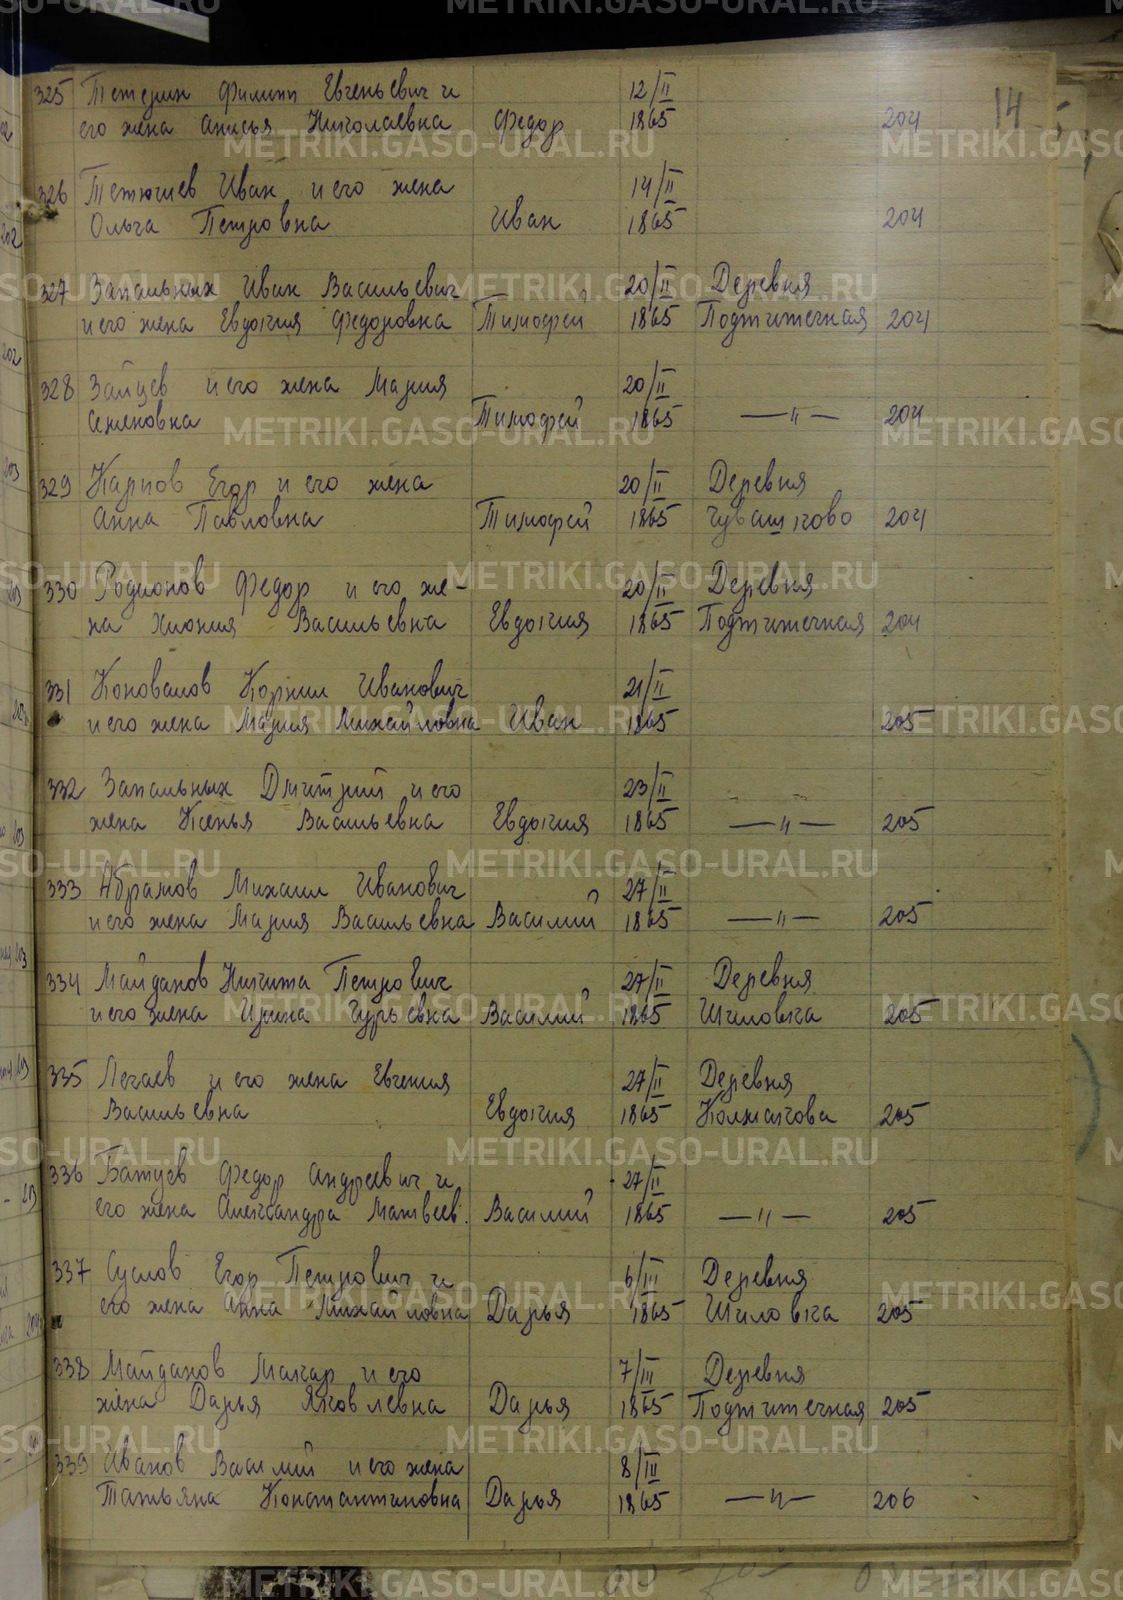 14
325 Тетерин Филипп Евгеньевич и 12/II
его жена Анисья Николаевна Федор 1865 204
326 Тетючев Иван и его жена 14/II
Ольга Петровна Иван 1865 204
327 Запальных Иван Васильевич 20/II Деревня
и его жена Евдокия Федоровна Тимофей 1865 Подтитечная 204
328 Зайцев и его жена Мария 20/II
Семеновна Тимофей 1865 —"— 204
329 Карпов Егор и его жена 20/II Деревня
Анна Павловна Тимофей 1865 Чувашково 204
330 Родионов Федор и его же- 20/II Деревня
на Хиония Васильевна Евдокия 1865 Подтитечная 204
331 Коновалов Корнил Иванович 21/II
и его жена Мария Михайловна Иван 1865 205
332 Запальных Дмитрий и его 23/II
жена Ксенья Васильевна Евдокия 1865 —"— 205
333 Абрамов Михаил Иванович 27/II
и его жена Мария Васильевна Василий 1865 —"— 205
334 Майданов Никита Петрович 27/II Деревня
и его жена Ирина Гурьевна Василий 1865 Шиловка 205
335 Легаев и его жена Евгения 27/II Деревня
Васильевна Евдокия 1865 Колмакова 205
336 Батуев Федор Андреевич и 27/II
его жена Александра Матвеев. Василий 1865 —"— 205
337 Суслов Егор Петрович и 6/III Деревня
его жена Анна Михайловна Дарья 1865 Шиловка 205
338 Майданов Макар и его 7/III Деревня
жена Дарья Яковлевна Дарья 1865 Подтитечная 205
339 Иванов Василий и его жена 8/III
Татьяна Константиновна Дарья 1865 —"— 206
METRIKI.GASO-URAL.RU